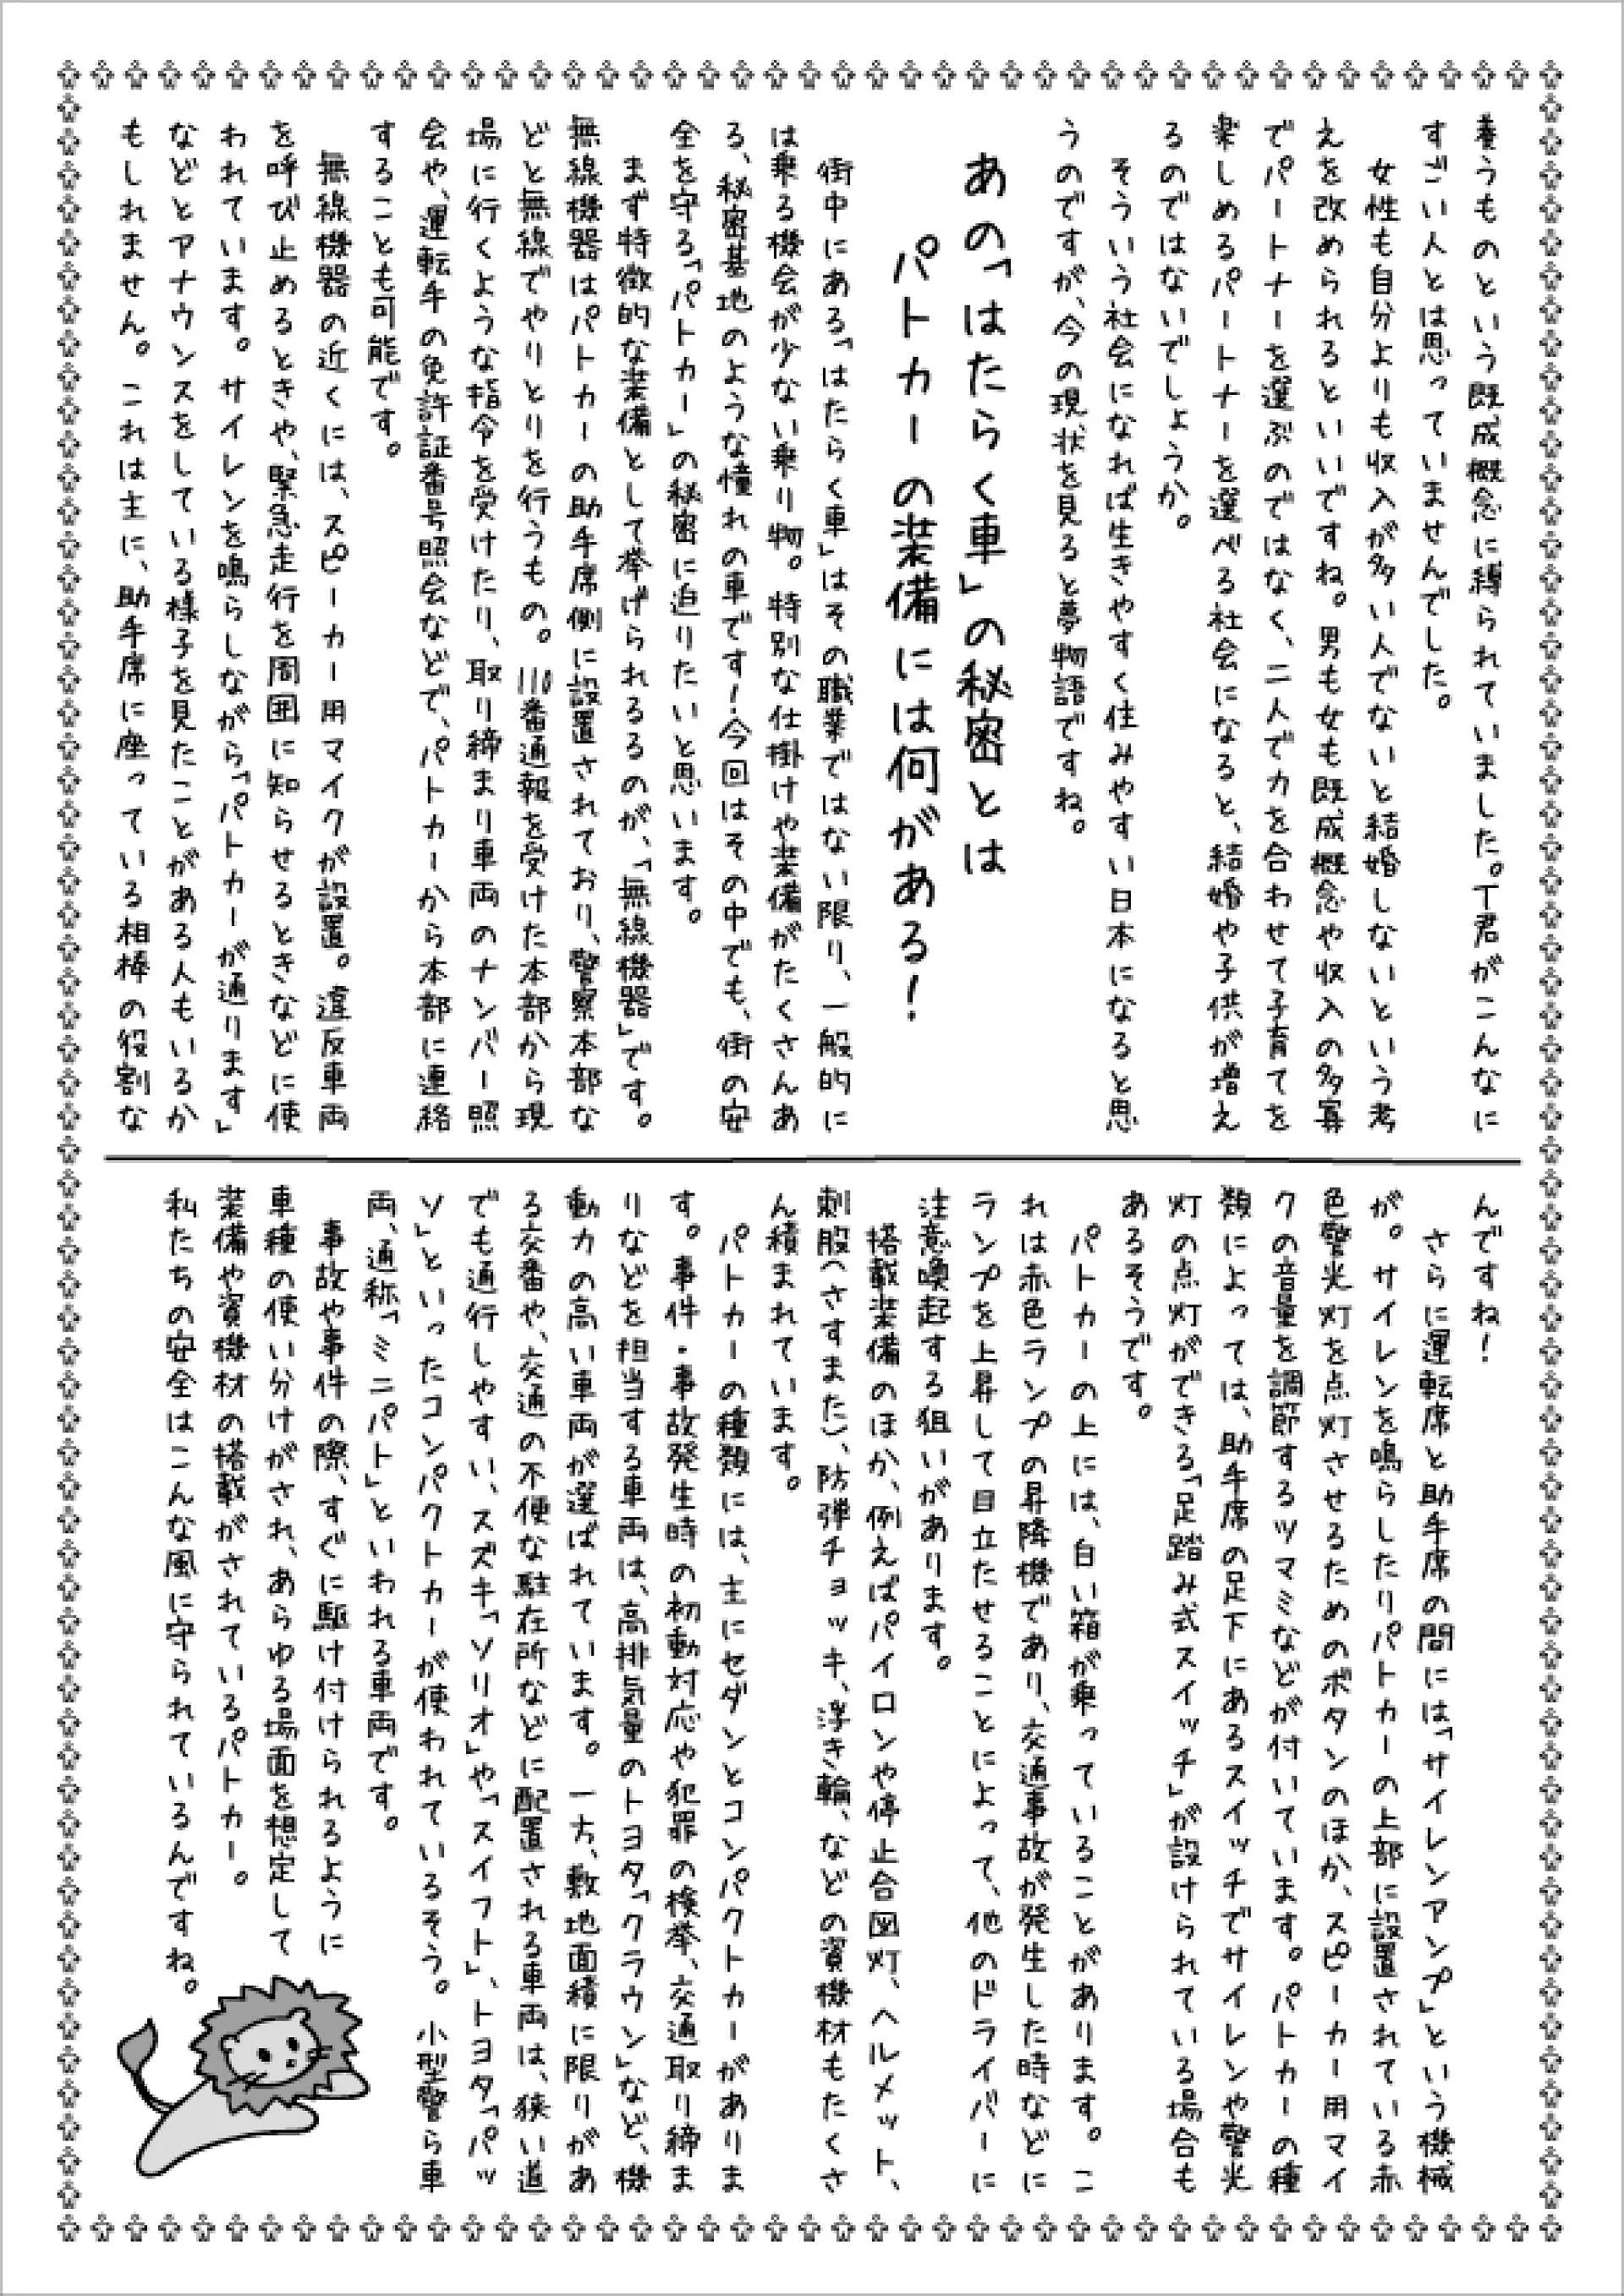 養うものという既成概念に縛られていました。T君がこんなに
すごい人とは思っていませんでした。
女性も自分よりも収入が多い人でないと結婚しないという考
えを改められるといいですね。男も女も既成概念や収入の多寡
でパートナーを選ぶのではなく、二人で力を合わせて子育てを
楽しめるパートナーを選べる社会になると、結婚や子供が増え
るのではないでしょうか。
そういう社会になれば生きやすく住みやすい日本になると思
うのですが、今の現状を見ると夢物語ですね。
あの「はたらく車」の秘密とは
パトカーの装備には何がある!
街中にある「はたらく車」はその職業ではない限り、一般的に
は乗る機会が少ない乗り物。特別な仕掛けや装備がたくさんあ
る、秘密基地のような憧れの車です!今回はその中でも、街の安
全を守る「パトカー」の秘密に迫りたいと思います。
まず特徴的な装備として挙げられるるのが、「無線機器」です。
無線機器はパトカーの助手席側に設置されており、警察本部な
どと無線でやりとりを行うもの。110番通報を受けた本部から現
場に行くような指令を受けたり、取り締まり車両のナンバー照
会や、運転手の免許証番号照会などで、パトカーから本部に連絡
することも可能です。
無線機器の近くには、スピーカー用マイクが設置。違反車両
を呼び止めるときや、緊急走行を周囲に知らせるときなどに使
われています。サイレンを鳴らしながら「パトカーが通ります」
などとアナウンスをしている様子を見たことがある人もいるか
もしれません。これは主に、助手席に座っている相棒の役割な
んですね!
さらに運転席と助手席の間には「サイレンアンプ」という機械
が。サイレンを鳴らしたりパトカーの上部に設置されている赤
色警光灯を点灯させるためのボタンのほか、スピーカー用マイ
クの音量を調節するツマミなどが付いています。パトカーの種
類によっては、助手席の足下にあるスイッチでサイレンや警光
灯の点灯ができる「足踏み式スイッチ」が設けられている場合も
あるそうです。
パトカーの上には、白い箱が乗っていることがあります。こ
れは赤色ランプの昇降機であり、交通事故が発生した時などに
ランプを上昇して目立たせることによって、他のドライバーに
注意喚起する狙いがあります。
搭載装備のほか、例えばパイロンや停止合図灯、ヘルメット、
刺股(さすまた)、防弾チョッキ、浮き輪、などの資機材もたくさ
ん積まれています。
パトカーの種類には、主にセダンとコンパクトカーがありま
す。事件・事故発生時の初動対応や犯罪の検挙、交通取り締ま
りなどを担当する車両は、高排気量のトヨタ「クラウン」など、機
動力の高い車両が選ばれています。一方、敷地面積に限りがあ
る交番や、交通の不便な駐在所などに配置される車両は、狭い道
でも通行しやすい、スズキ「ソリオ」や「スイフト」、トヨタ「パッ
ソ」といったコンパクトカーが使われているそう。小型警ら車
両、通称「ミニパト」といわれる車両です。
事故や事件の際、すぐに駆け付けられるように
車種の使い分けがされ、あらゆる場面を想定して
装備や資機材の搭載がされているパトカー。
私たちの安全はこんな風に守られているんですね。